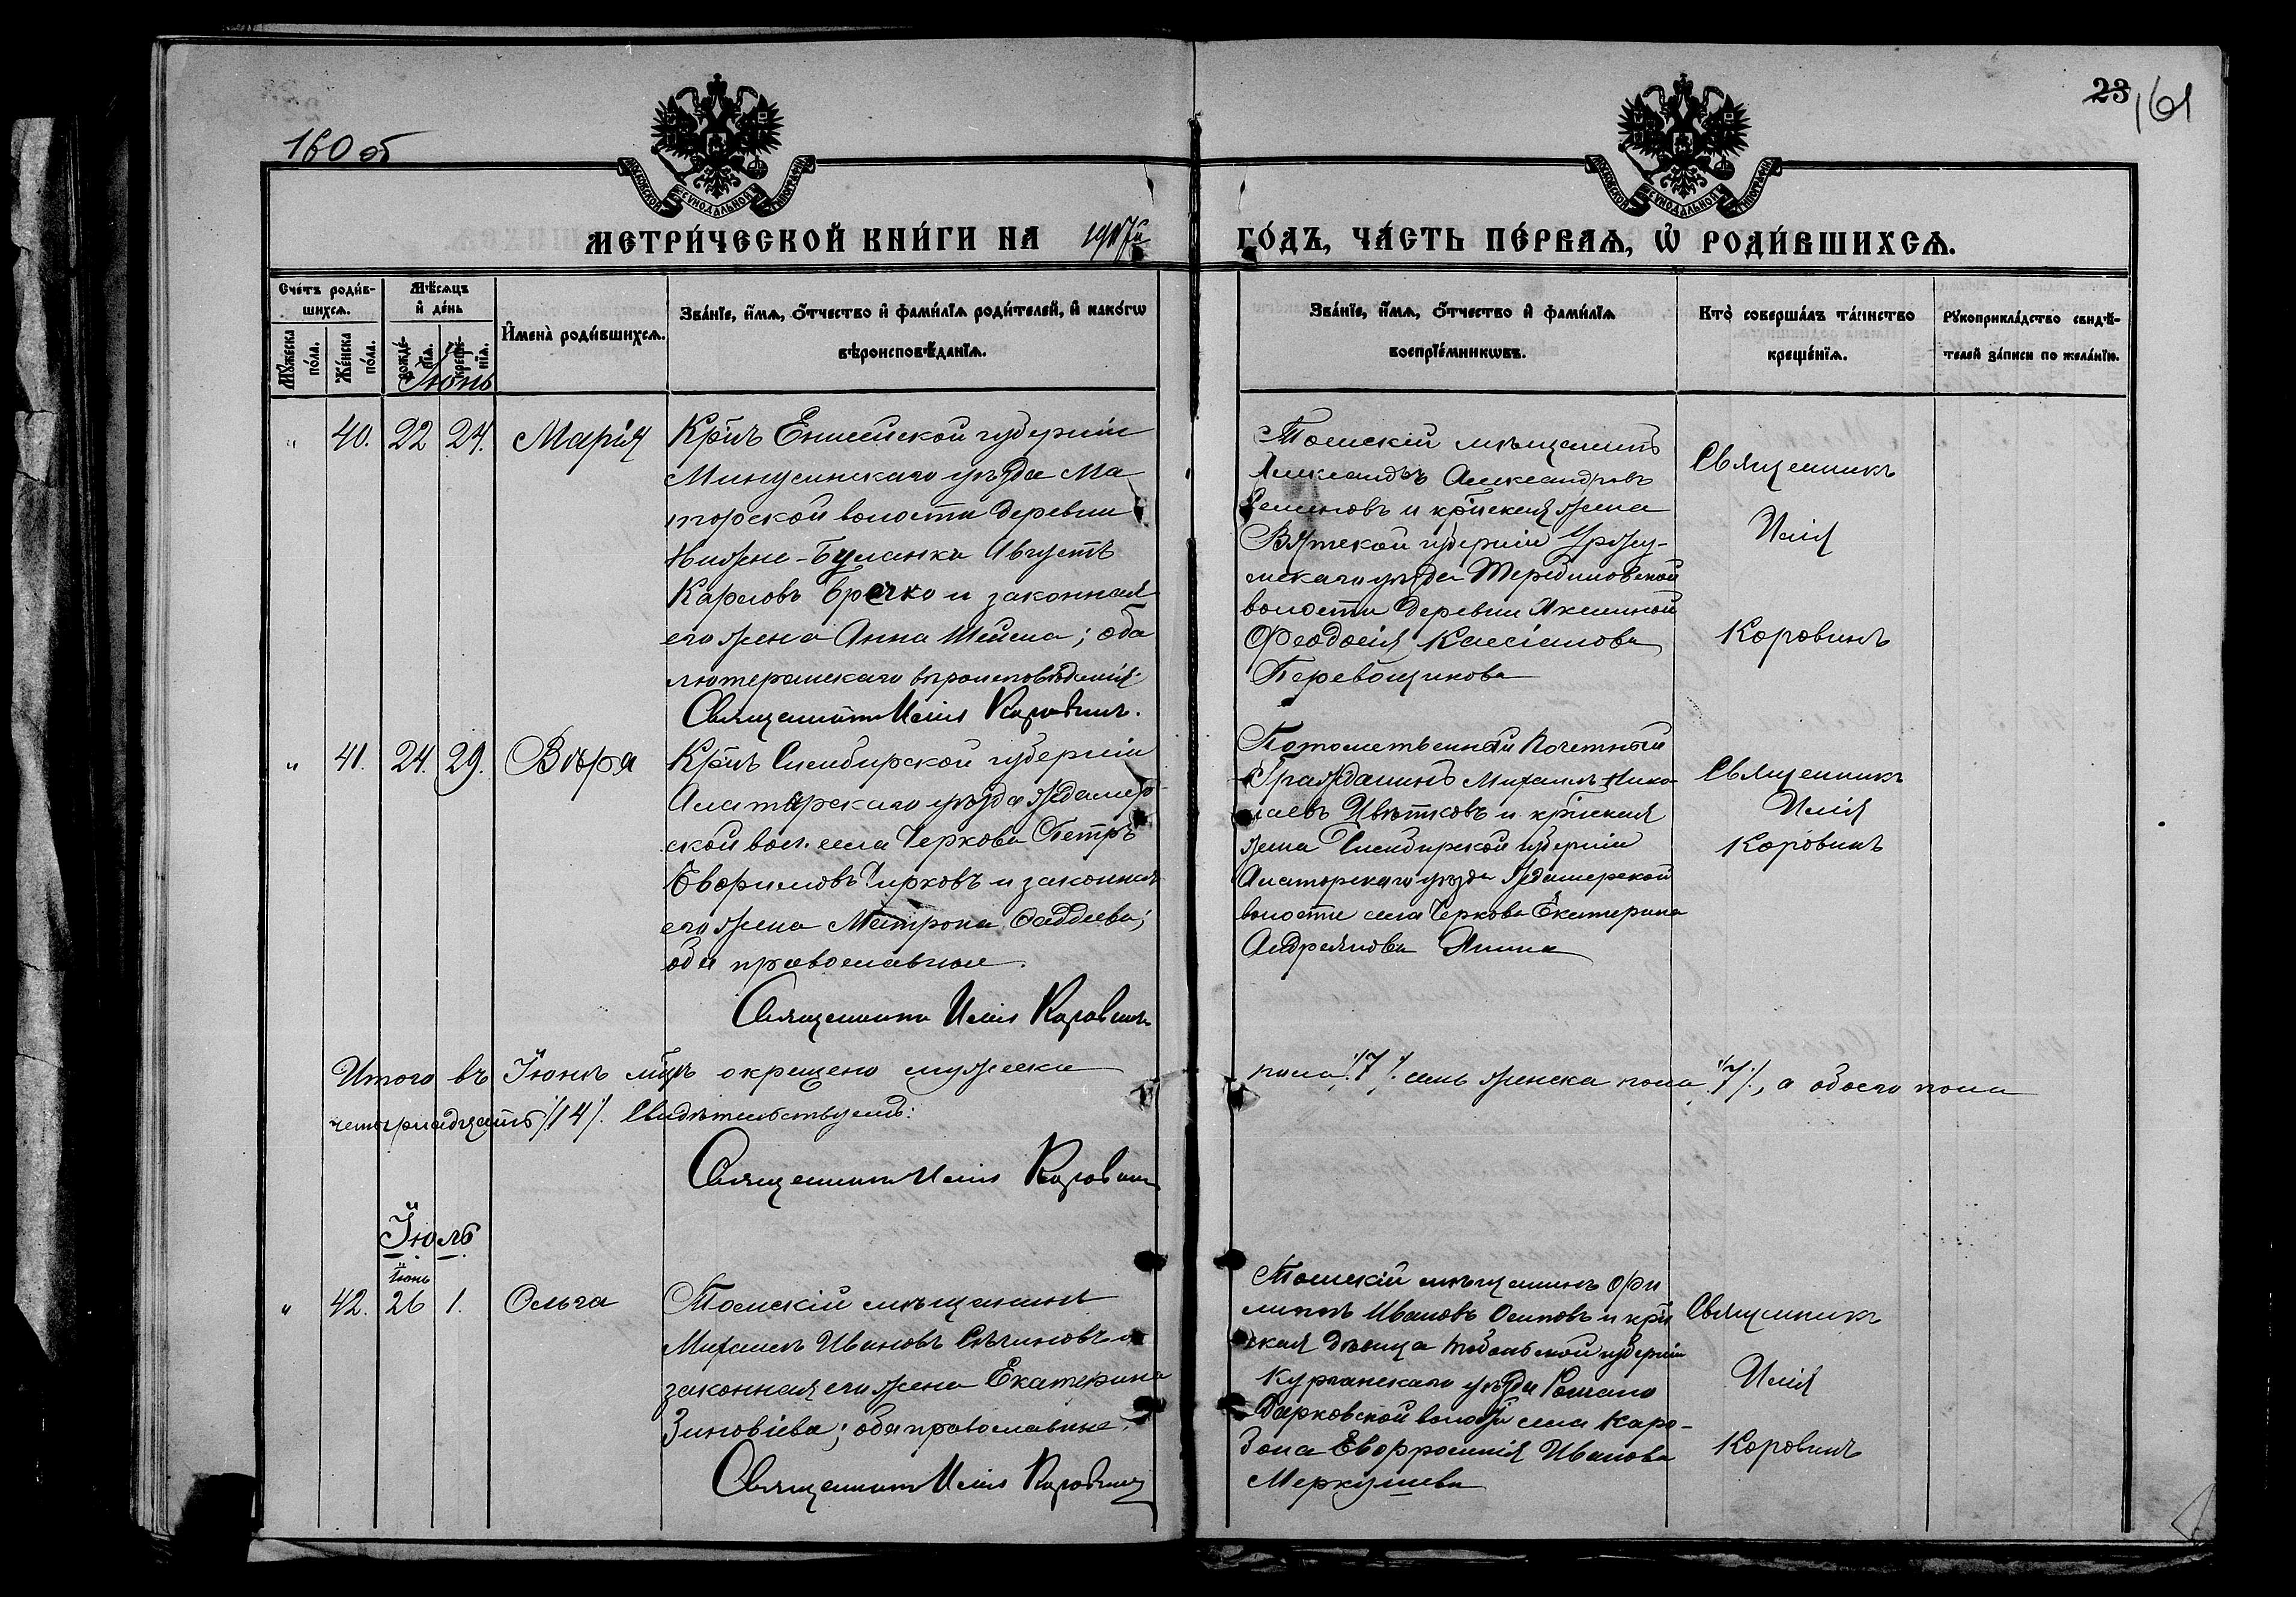 160 об
23 161
МОСКОВСКОЙ СѴНОДАЛЬНОЙ ТИПОГРАФІИ
МОСКОВСКОЙ СѴНОДАЛЬНОЙ ТИПОГРАФІИ
МЕТРИ́ЧЕСКОЙ КНИ́ГИ НА 1917й ГО́ДЪ, ЧА́СТЬ ПЕ́РВАѦ, Ѡ РОДИ́ВШИХСѦ.
Счетъ роди́в-
шихсѧ.
Мѣсѧцъ
и де́нь
Мꙋжеска
по́ла.
Же́нска
по́ла.
рожде́-
нїѧ.
креще́-
нїѧ.
Имена̀ роди́вшихсѧ.
Зва́нїе, и́мѧ, о́тчество и фами́лїѧ роди́телей, и како́гѡ
вѣроисповѣ́данїѧ.
Зва́нїе, и́мѧ, о́тчество и фами́лїѧ
воспрїе́мникѡвъ.
Кто̀ соверша́лъ та́инство
креще́нїѧ.
Рꙋкоприкла́дство свидѣ́-
телей за́писи по жела́нїю.
Іюнь
" 40. 22 24. Марія
Кр-нъ Енисейской губерніи
Минусинскаго уѣзда Ма-
торской волости деревни
Нижне-Буланки Августъ
Карловъ Бречко и законная
его жена Анна ; оба
лютеранскаго вѣроисповѣданія.
Священникъ Илія Коровинъ.
Томскій мѣщанинъ
Александръ Александровъ
Семеновъ и кр-нская жена
Вятской губерніи Уржу-
мскаго уѣзда
волости деревни
Феодосія Касіанова
Перевощикова
Священникъ
Илія
Коровинъ
" 41. 24. 29. Вѣра
Кр-нъ Симбирской губерніи
Алатырскаго уѣзда Ждамер-
ской вол. села Чиркова Петръ
Евфимовъ Чирковъ и законная
его жена Матрона Фаддеева;
оба православные.
Священникъ Илія Коровинъ
Потомственный Почетный
Гражданинъ Михаилъ Нико-
лаевъ Цвѣтковъ и кр-нская
жена Симбирской губерніи
Алаторскаго уѣзда Ждамерской
волости села Чиркова Екатерина
Андреянова
Священникъ
Илія
Коровинъ
Итого въ Іюнѣ м-цѣ окрещено мужеска пола /7/ семь женска пола /7/, а обоего пола
четырнадцать /14/. Свидѣтельствуемъ:
Священникъ Илія Коровинъ
Іюль
Іюнь
" 42. 26 1. Ольга
Томскій мѣщанинъ
Михаилъ Ивановъ и
законная его жена Екатерина
Зиновіева; оба православные.
Священникъ Илія Коровинъ
Томскій мѣщанинъ Фи-
липпъ Ивановъ Осиповъ и кр-н
ская дѣвица Тобольской губерніи
Курганскаго уѣзда
волости села
Евфросинія Иванова
Меркушева
Священникъ
Илія
Коровинъ